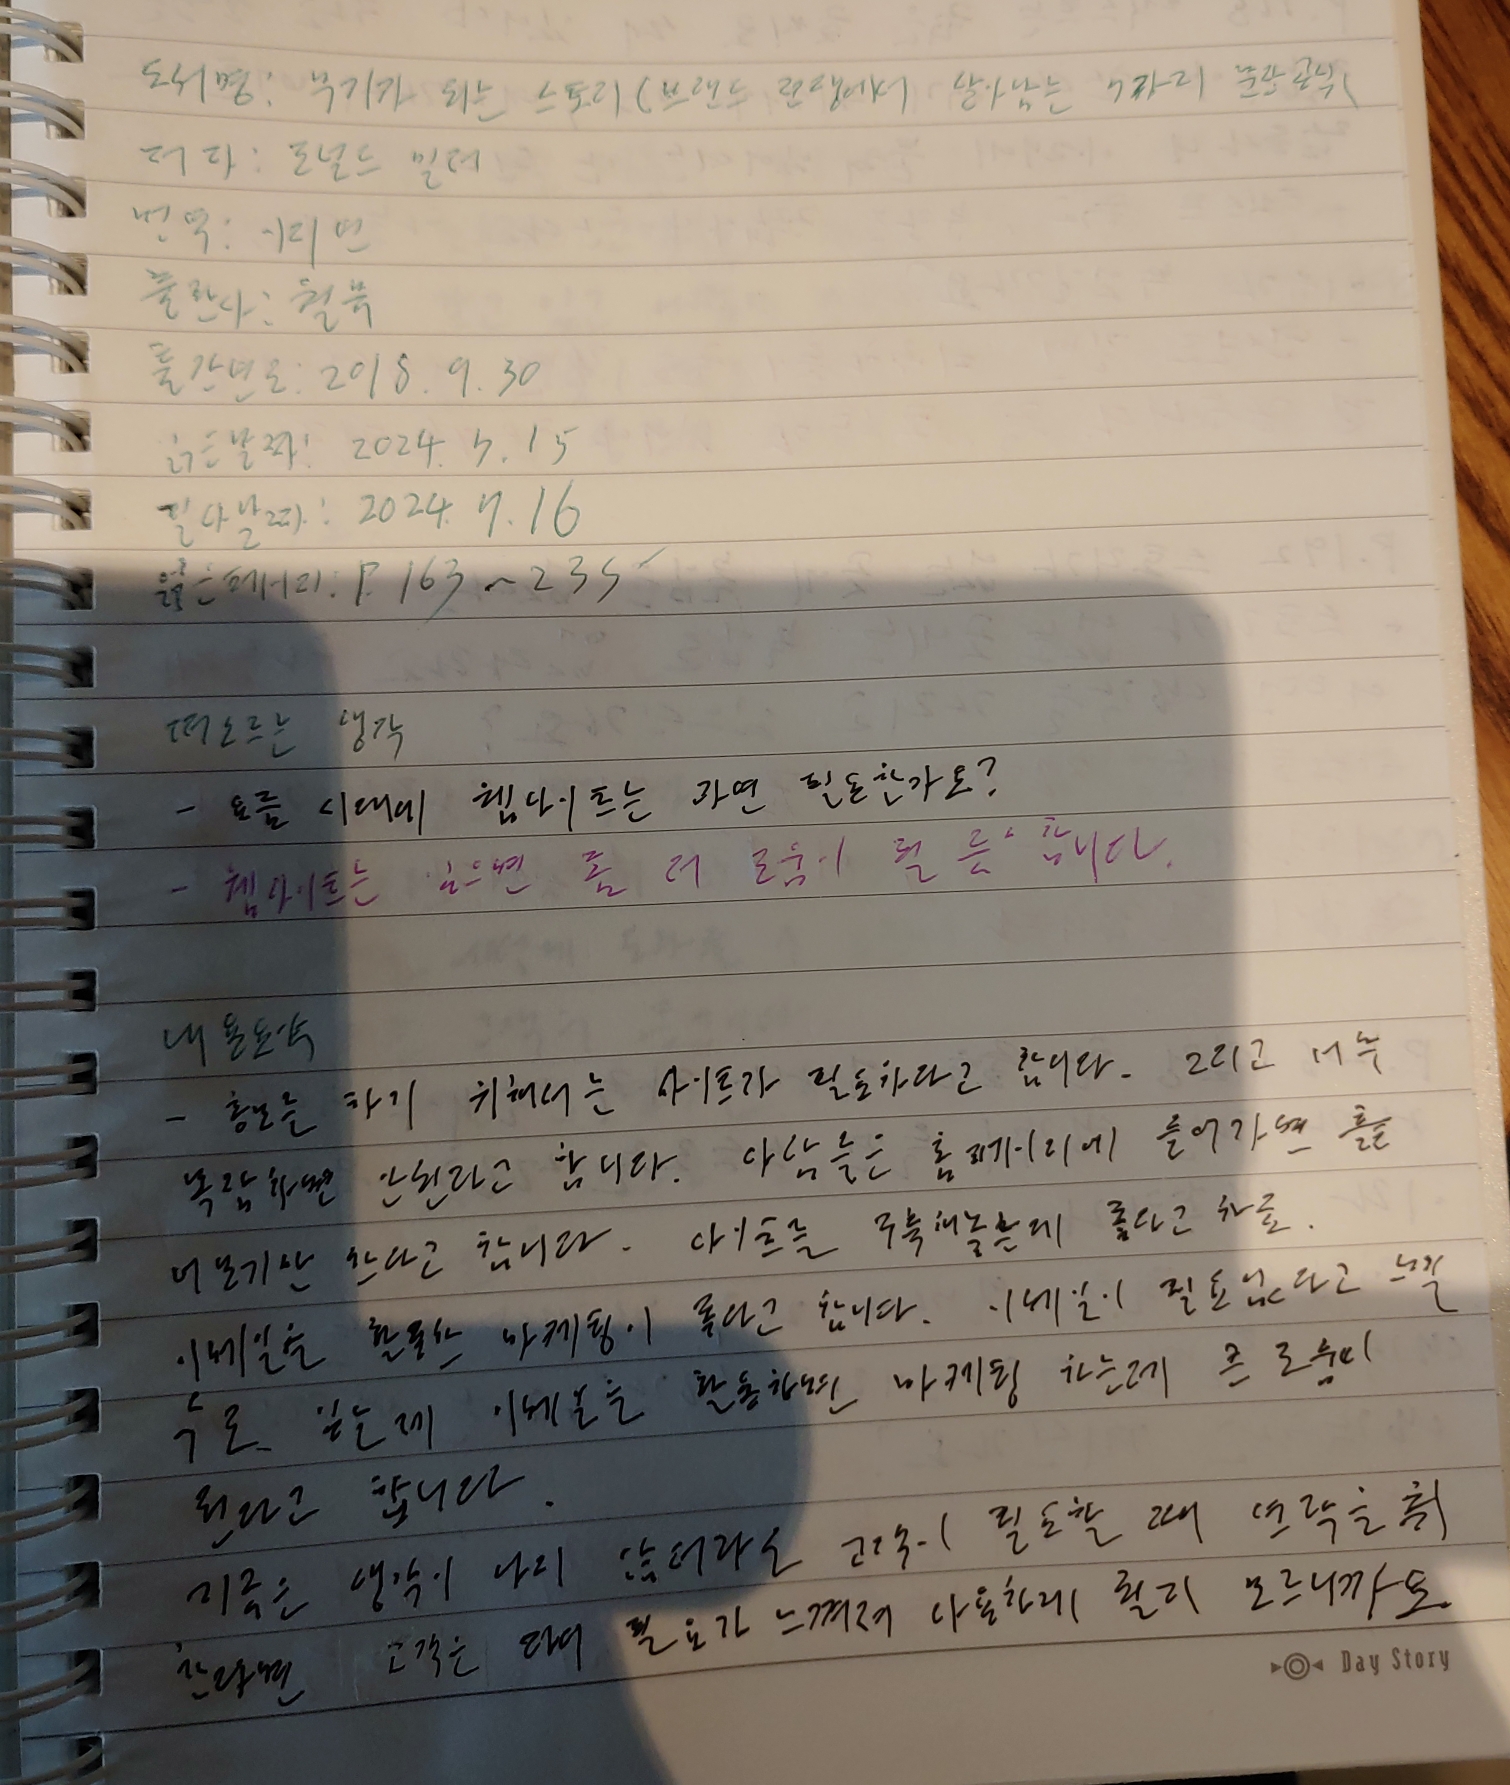 도서명: 무기가 되는 스토리(브랜드 전쟁에서 살아남는 7가지 문장 공식)
저자: 도널드 밀러
번역: 이지연
출판사: 윌북
출간년도: 2018. 9. 30
읽은날짜: 2024. 7. 15
필사날짜: 2024. 7. 16
읽은페이지: P. 163 ~ 235
떠오르는 생각
- 요즘 시대에 웹사이트는 과연 필요한가요?
- 웹사이트는 있으면 좀 더 도움이 될 듯 합니다.
내용요약
- 홍보를 하기 위해서는 사이트가 필요하다고 합니다. 그리고 너무
복잡하면 안된다고 합니다. 사람들은 홈페이지에 들어가면 훑
어보기만 한다고 합니다. 사이트를 구축해놓은게 좋다고 하죠.
이메일을 활용한 마케팅이 좋다고 합니다. 이메일이 필요없다고 느낄
수도 있는데 이메일을 활용하면 마케팅 하는데 큰 도움이
된다고 합니다.
지금은 생각이 나지 않더라도 고객이 필요할 때 연락을 취
한다면 고객은 다시 필요가 느껴져 사용하게 될지 모르니까요.
Day Story